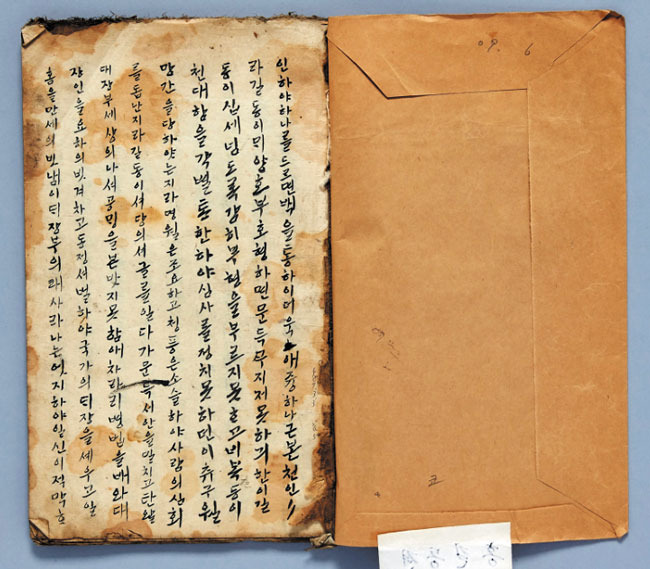 인하야하나를드르면백을통하이더욱애중하나근본천인〃
라길동이믜양호부호형하면문득꾸지저못하긔한이길
동이십셰넘도록감히부형을부르지못하고비복등이
천대함을각별통한하야심사를정치못하던이츄구월
망간을당하얏는지라명월은조요하고청풍은소슬하야사람의심회
를돕난지라길동이셔당의셔글를일다가문득셔안을밀치고탄왈
대장부셰상의나셔공밍을본밧지못함애차라리병법을배와대
장인을요하의빗겨차고동정셔벌하야국가의듸장을셰우고일
홈을만셰의빗냄이듸장부의쾌사라나는엇지하야일신이적막호
09. 6